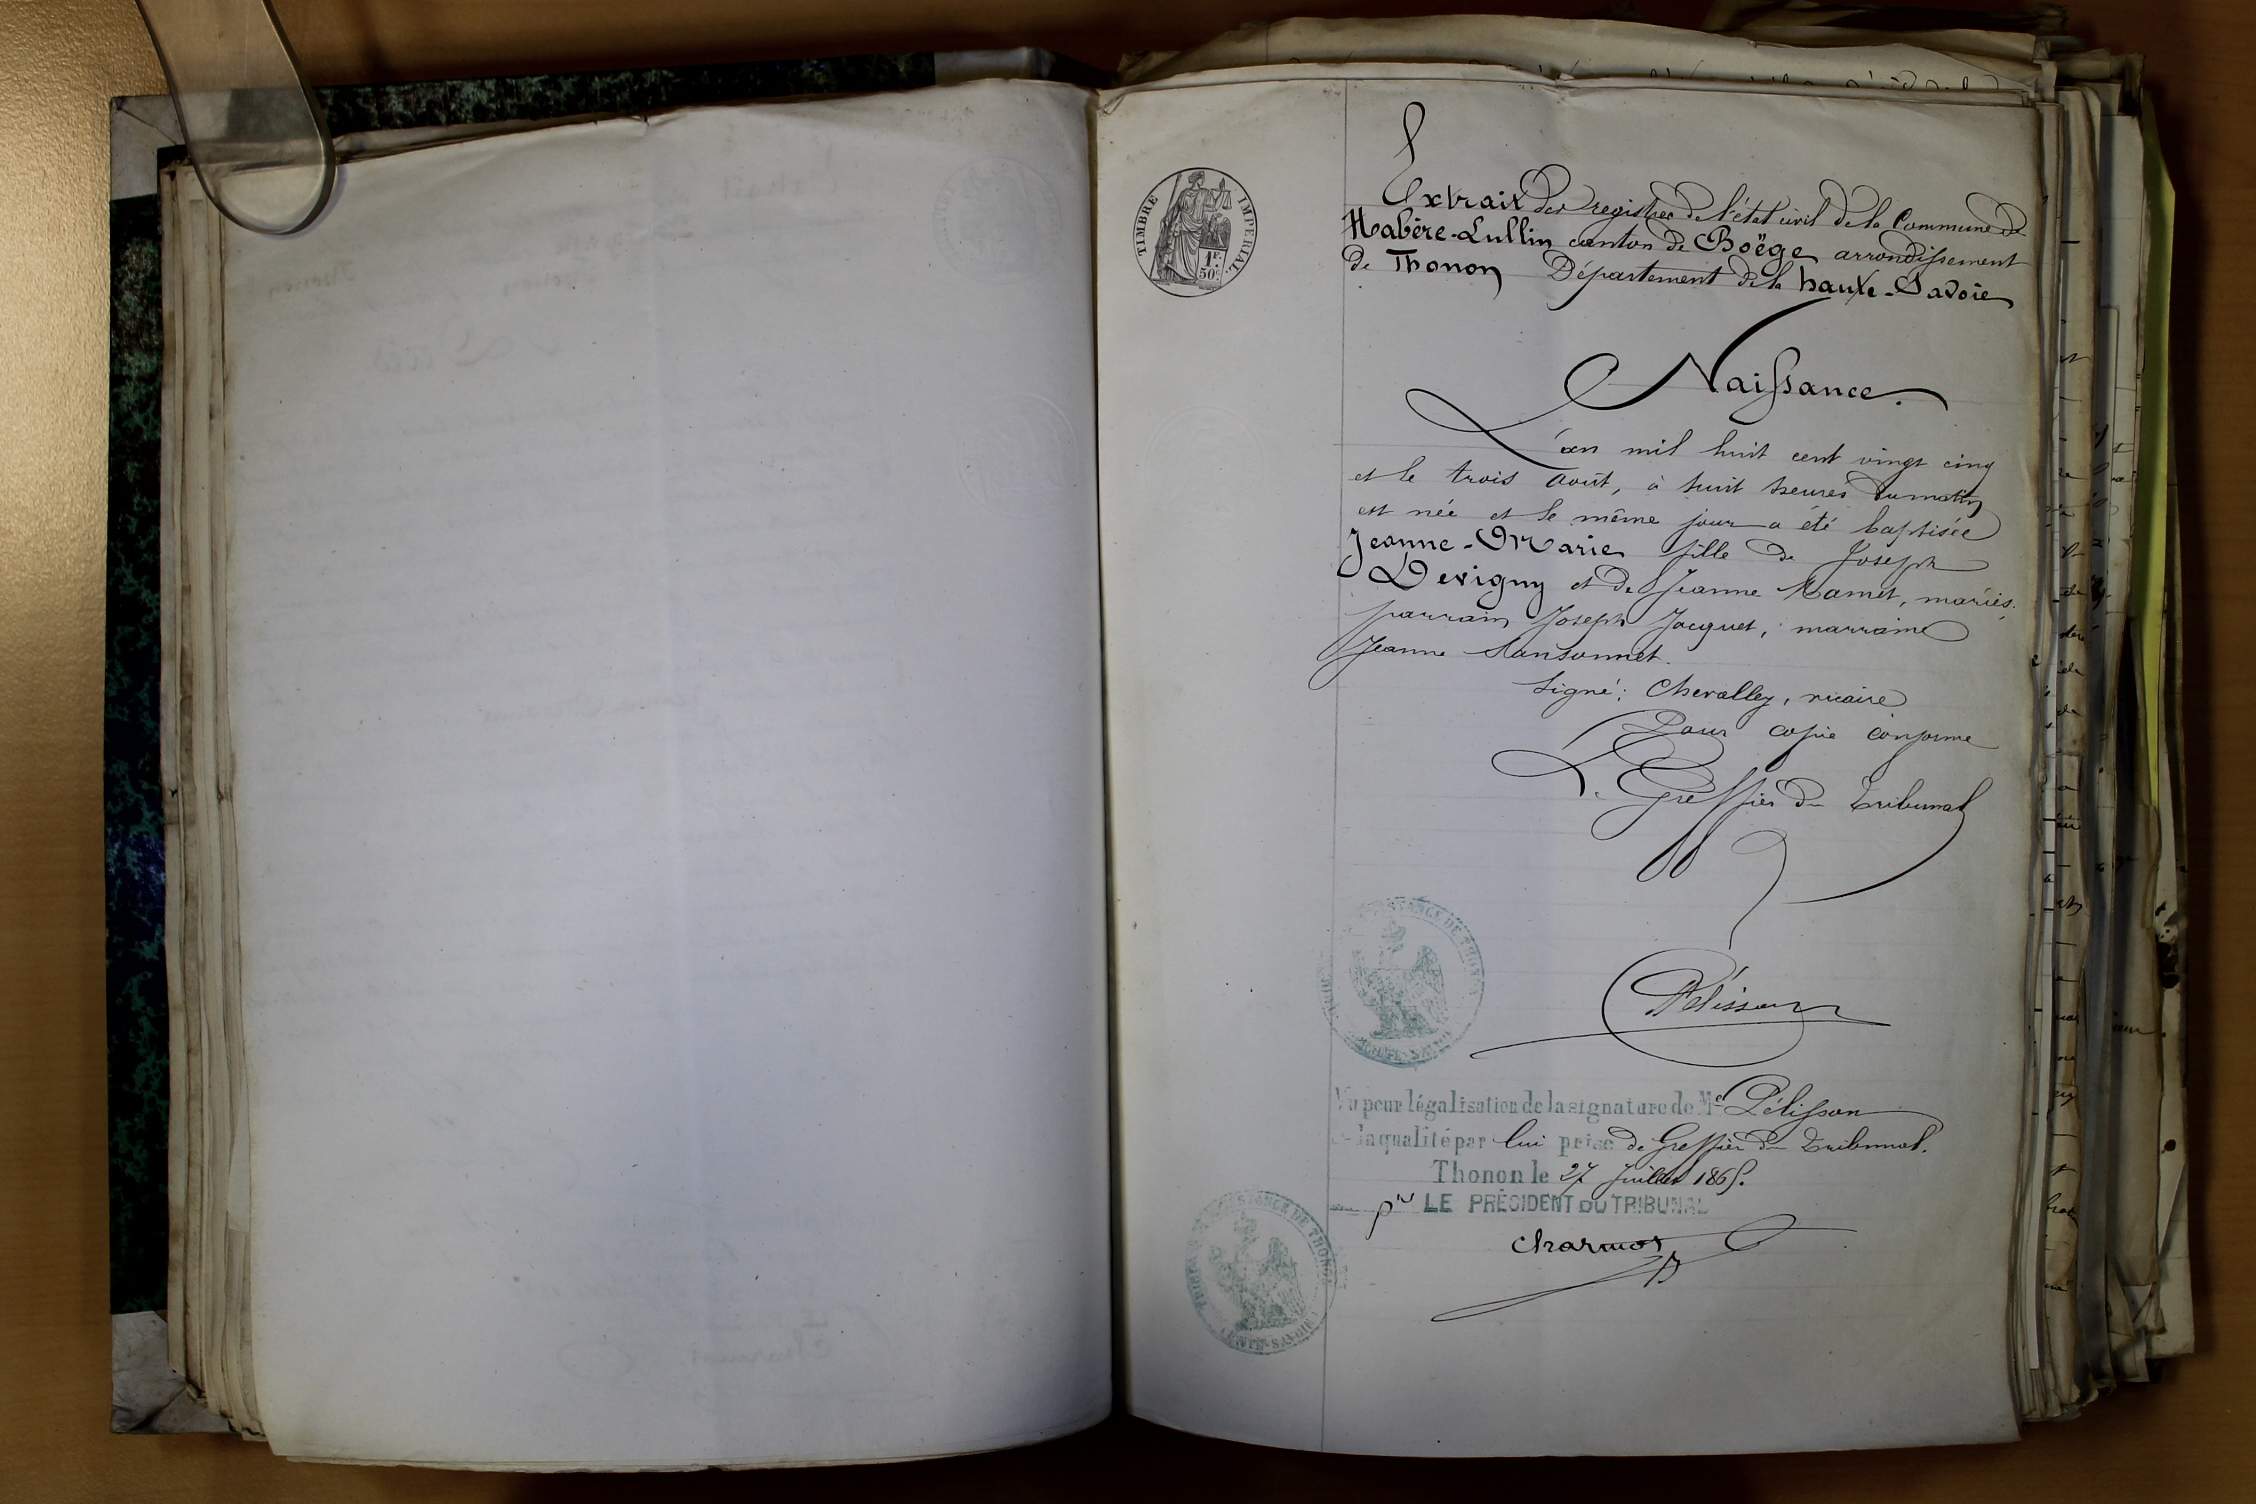 TIMBRE IMPERIAL.
1F.
50c.
Extrait des registres de l'état civil de la Commune de
Habère-Lullin canton de Boëge arrondissement
de Thonon Département de la haute-Savoie
Naissance.
L'an mil huit cent vingt cinq
et le trois Août, à huit heures du matin
est née et le même jour a été baptisée
Jeanne-Marie fille de Joseph
Devigny et de Jeanne mariés.
parrain Joseph Jacquet, marraine
Jeanne
Signé: Chevalley, vicaire
Pour copie conforme
Le Greffier du Tribunal
Pélisson
Vu pour légalisation de la signature de Me Pélisson
la qualité par lui prise de Greffier du Tribunal.
Thonon le 27 Juillet 1865.
pr LE PRÉSIDENT DU TRIBUNAL
Charmot